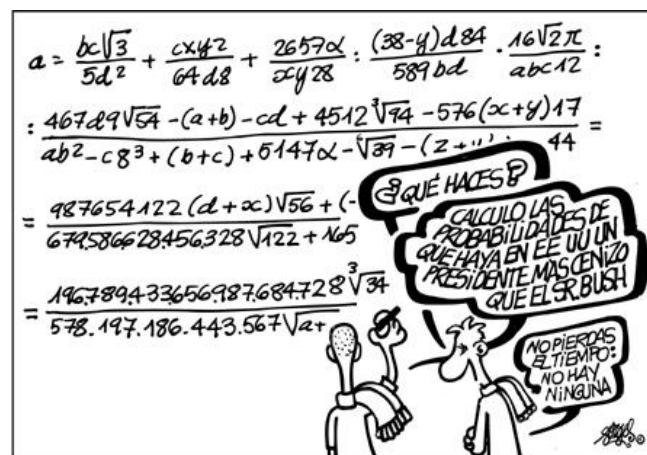 a = bc√3/5d² + cxy2/64d8 + 2657α/xy28 : (38-y)d84/589bd · 16√2π/abc12 :
: 467d9√54 -(a+b)-cd + 4512 ³√94 -576(x+y)17 / ab²-c8³+(b+c)+5147α- ⁶√39 -(z+ 44 =
= 987654122(d+x)√56 + (- / 679.586628.456.328√122 + 165
= 196.789.433.656.987.684.728 ³√34 / 578.197.186.443.567√a+
¿QUÉ HACES?
CALCULO LAS
PROBABILIDADES DE
QUE HAYA EN EE UU UN
PRESIDENTE MAS CENIZO
QUE EL SR. BUSH
NO PIERDAS
EL TIEMPO:
NO HAY
NINGUNA